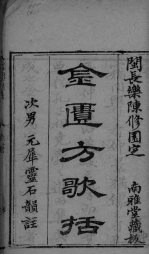 閩長樂陳修園定
南雅堂藏板
金匱方歌括
次男 元犀靈石韻註